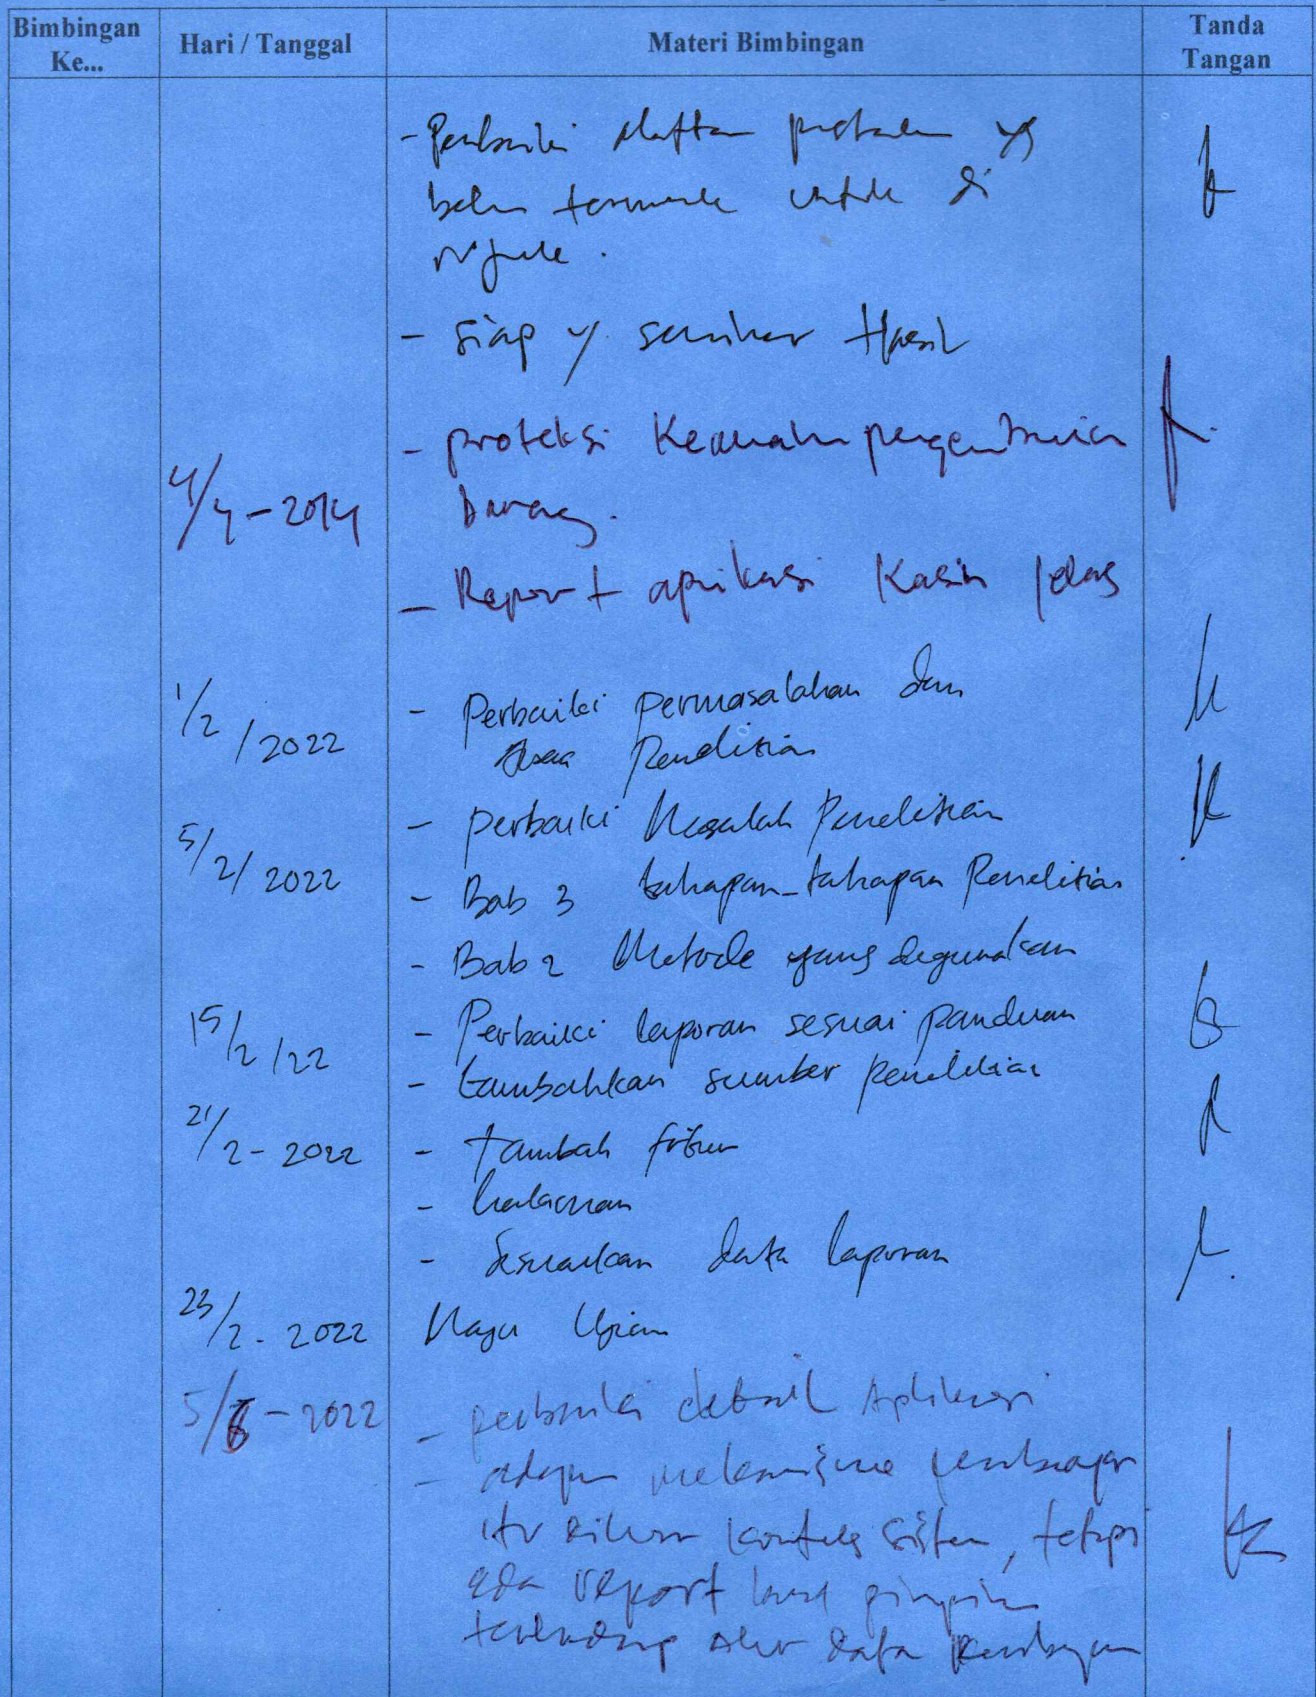 Bimbingan Ke...
Hari / Tanggal
Materi Bimbingan
Tanda Tangan
- Perbaiki daftar pustaka yg
belum termasuk untuk di
rujuk.
- Siap u/. seminar Hasil
4/4-2014
- proteksi Keamanan pengembalian
barang.
- Report aplikasi Kasih jelas
1/2/2022
- Perbaiki permasalahan dan
Penelitian
5/2/2022
- perbaiki Masalah Penelitian
- Bab 3 tahapan-tahapan Penelitian
- Bab 2 Metode yang digunakan
15/2/22
- Perbaiki laporan sesuai panduan
- tambahkan sumber Penelitian
21/2-2022
- Tambah fitur
- halaman
- Sesuaikan data laporan
23/2-2022
Maju Ujian
5/6-2022
- perbaiki detail Aplikasi
- adapun mekanisme
itu diluar konteks sistem, tetapi
ada report
terhadap alur data